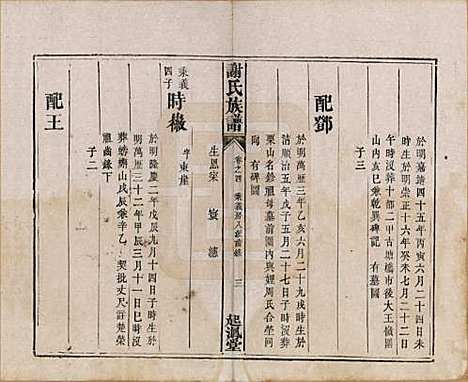 於明嘉靖四十五年丙寅六月二十四日未
時生於明崇正十六年癸未七月二十二日
午時沒葬十都二甲古塘橋市後大王嶺
山內亥巳兼乾巽碑記 有墓圖
子三
配鄧
於明萬歷三年乙亥六月二十九戌時生於
清順治五年戊子五月二十七日子時沒葬
栗山名鋒祖母墓前圍內與姪周氏合塋同
向 有碑圖
謝氏族譜
卷之四 兼義房入派前錄
三
起渢堂
生恩榮 寰 總
兼義四子 時檄
字東崖
於明隆慶二年戊辰九月十四日子時生於
明萬歷三十二年甲辰三月十一日巳時沒
葬螃蠏山戌辰兼辛乙 契批丈訂楚榮
祖齒錄下
子二
配王